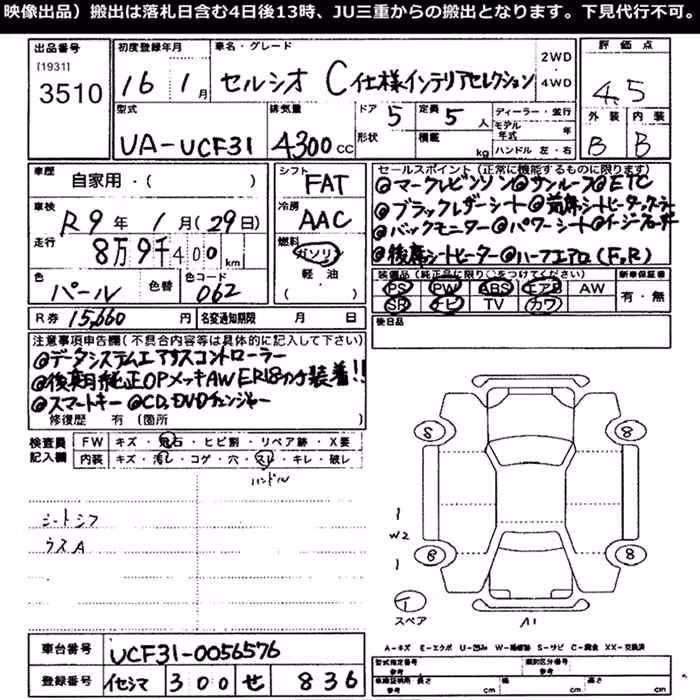 映像出品）搬出は落札日含む4日後13時、JU三重からの搬出となります。下見代行不可。
出品番号 初度登録年月 車名・グレード 2WD・4WD 評価点
[1931]
3510 16年1月 セルシオ C仕様インテリアセレクション 4.5
型式 排気量 ドア 5 定員 5人 ディーラー・並行 外装 内装
UA-UCF31 4300cc 形状 積載 kg モデル年式 年 ハンドル 右・左 B B
車歴 自家用・( )
シフト FAT
車検 R9年1月(29日)
冷房 AAC
走行 8万9千400km
燃料 ガソリン 軽油 ( )
色 パール 色替 色コード 062
R券 15,660円 名変通知期限 月 日
セールスポイント（正常に機能するものに限ります）
@マークレビンソン@サンルーフ@ETC
@ブラックレザーシート@前席シートヒータークーラー
@バックモニター@パワーシート@イージークローザー
@後席シートヒーター@ハーフエアロ(F,R)
装備品（純正品に限り○をつけてください） 新車保証書
PS PW ABS エアB AW 有・無
SR ナビ TV カワ
後日品
注意事項申告欄(不具合内容等は具体的に記入して下さい)
@データシステムエアサスコントローラー
@後期純正OPメッキAW ER18インチ装着!!
@スマートキー @CD,DVDチェンジャー
修復歴 有 (箇所 )
検査員記入欄 FW キズ・飛石・ヒビ割・リペア跡・X要
内装 キズ・汚レ・コゲ・穴・スレ・キレ・破レ
ハンドル
シートシワ
ウスA
8 8
1
W2
1
8 8
T
スペア
A1
A-キズ E-エクボ U-凹み W-補修跡 S-サビ C-腐食 XX-交換済
車台番号 UCF31-0056576
登録番号 イセシマ 300 せ 836
型式指定番号 類別区分番号
参考 参考
車庫証明用・長さ 幅 高さ
参考 cm cm cm